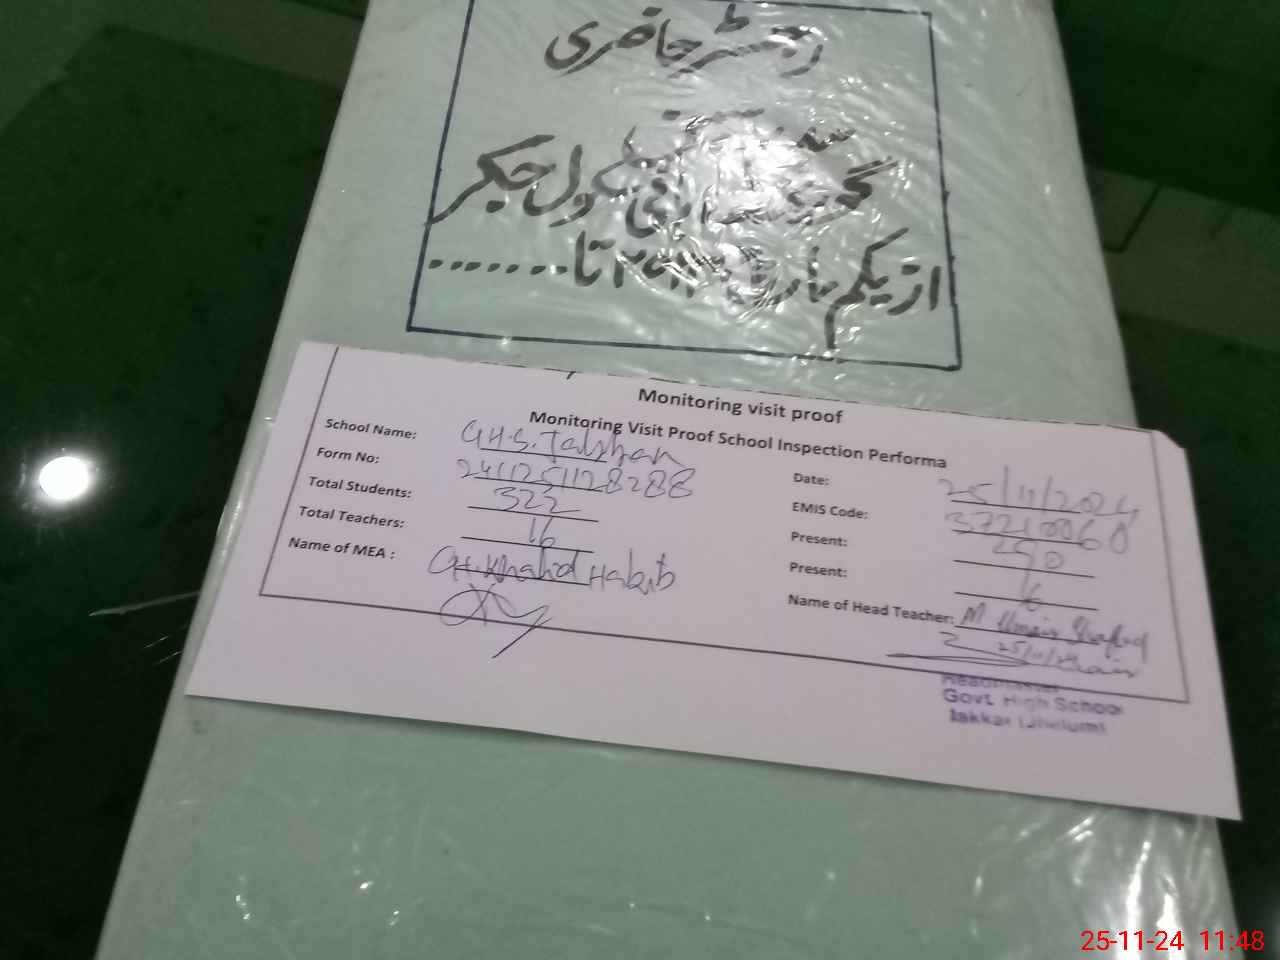 رجسٹر حاضری
گورنمنٹ ہائی سکول جکر
از یکم مارچ تا.......
Monitoring visit proof
Monitoring Visit Proof School Inspection Performa
School Name: G.H.S.
Date: 25/11/2024
Form No: 2411251128288
EMIS Code: 37210060
Total Students: 322
Present: 290
Total Teachers: 16
Present: 16
Name of MEA : CH.Khalid Habib
Name of Head Teacher: M Umair
25/11/24
Headmaster
Govt. High School
Jakkar (Jhelum)
25-11-24 11:48